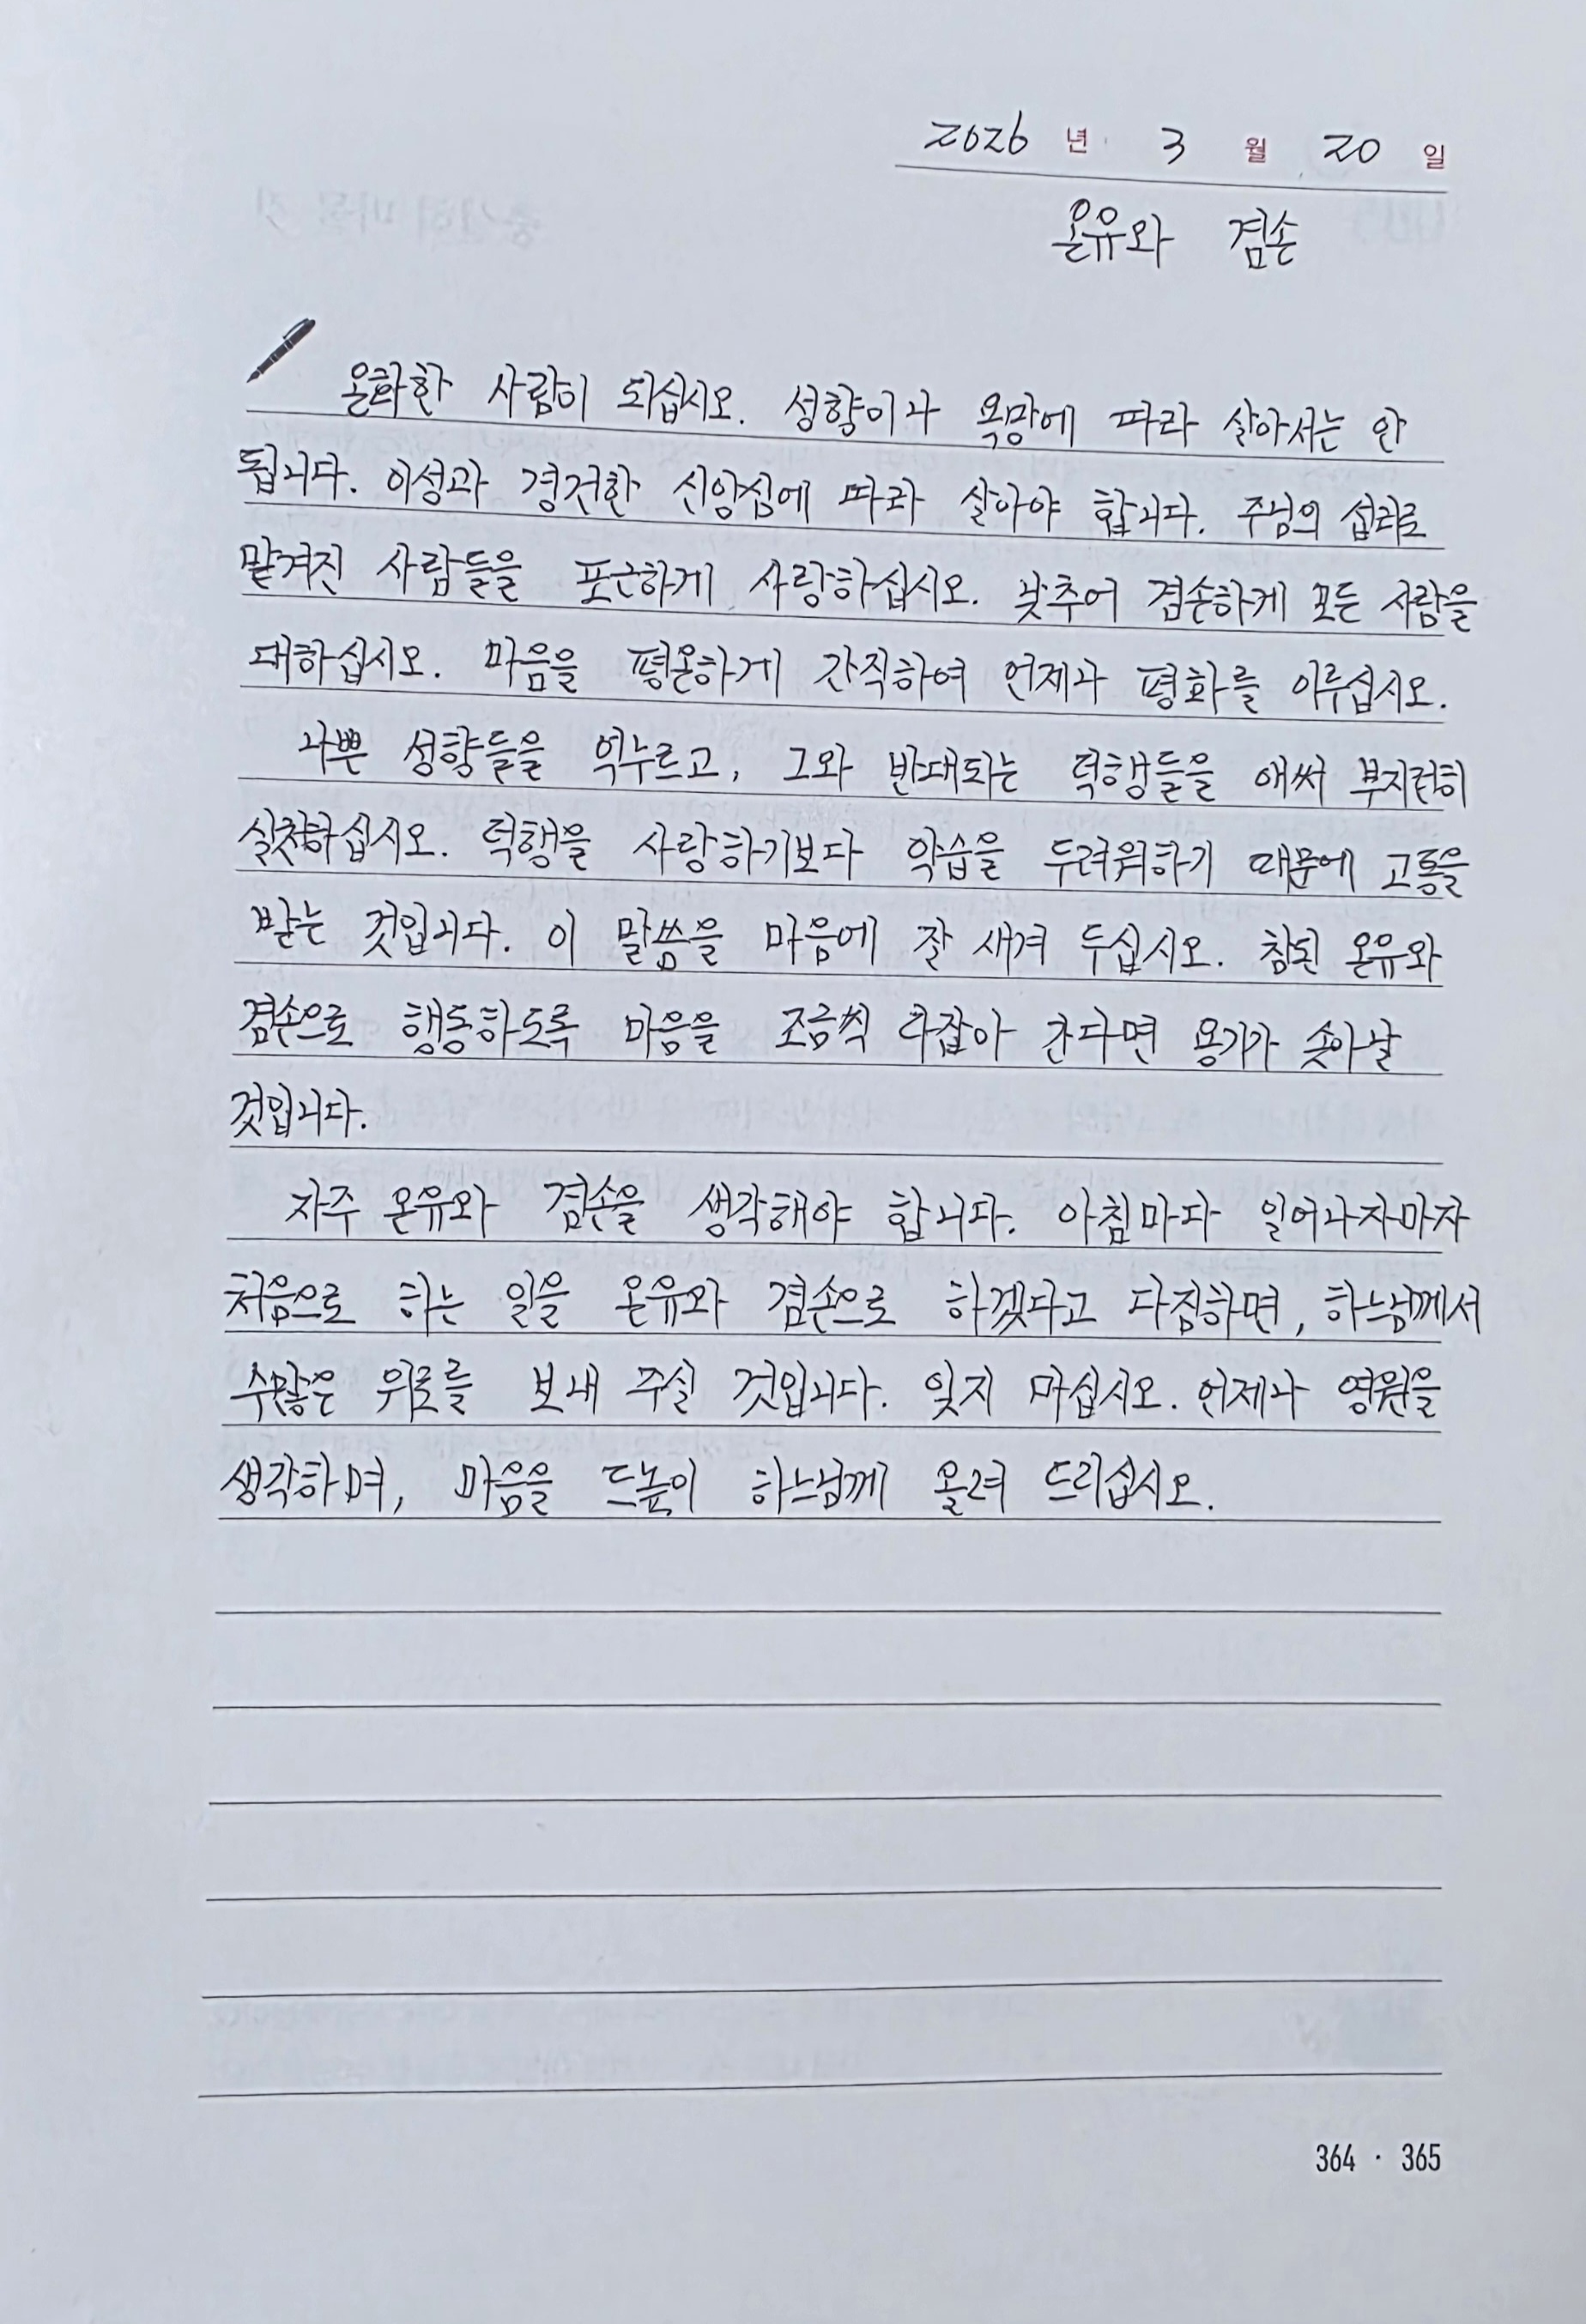 2026 년 3 월 20 일
온유와 겸손
온화한 사람이 되십시오. 성향이나 욕망에 따라 살아서는 안
됩니다. 이성과 경건한 신앙심에 따라 살아야 합니다. 주님의 섭리로
맡겨진 사람들을 포근하게 사랑하십시오. 낮추어 겸손하게 모든 사람을
대하십시오. 마음을 평온하게 간직하여 언제나 평화를 이루십시오.
나쁜 성향들을 억누르고, 그와 반대되는 덕행들을 애써 부지런히
실천하십시오. 덕행을 사랑하기보다 악습을 두려워하기 때문에 고통을
받는 것입니다. 이 말씀을 마음에 잘 새겨 두십시오. 참된 온유와
겸손으로 행동하도록 마음을 조금씩 다잡아 간다면 용기가 솟아날
것입니다.
자주 온유와 겸손을 생각해야 합니다. 아침마다 일어나자마자
처음으로 하는 일을 온유와 겸손으로 하겠다고 다짐하면, 하느님께서
수많은 위로를 보내 주실 것입니다. 잊지 마십시오. 언제나 영원을
생각하며, 마음을 드높이 하느님께 올려 드리십시오.
364 · 365